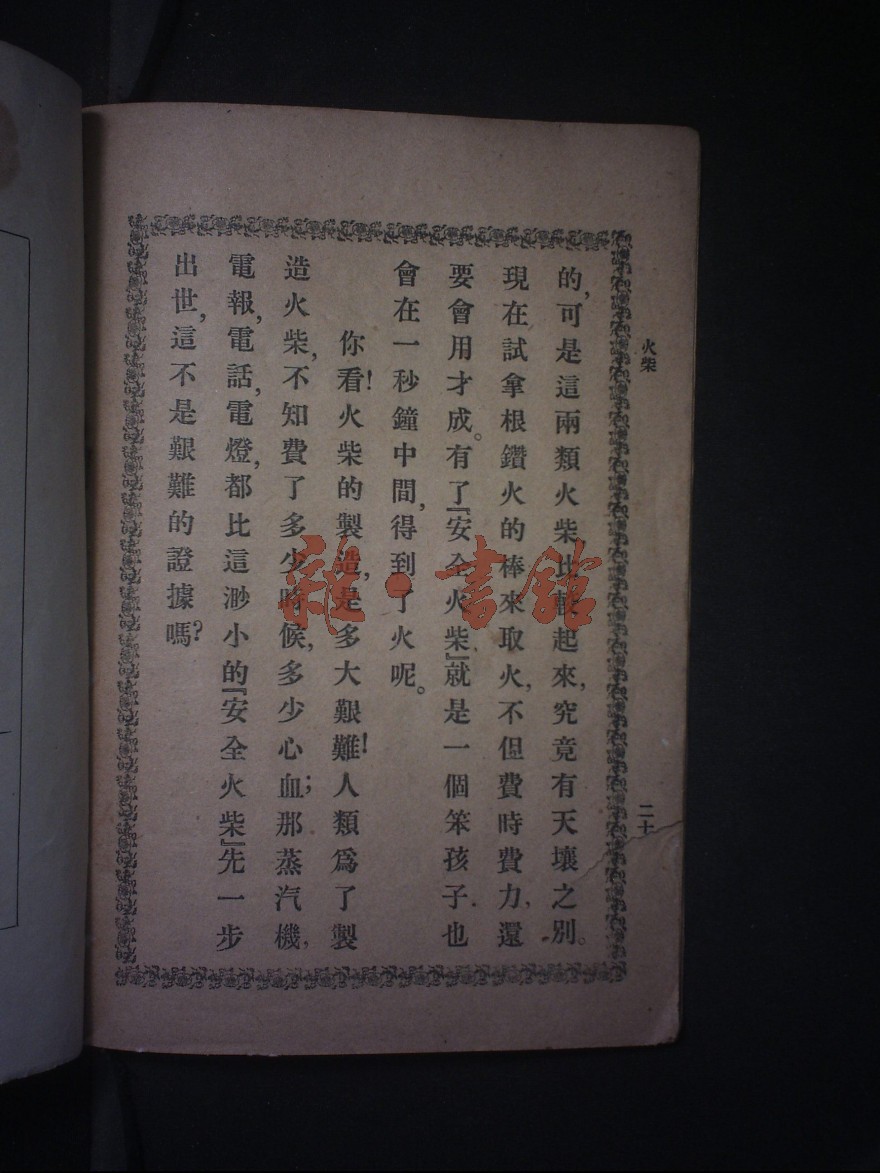 火柴
二十
的,可是這兩類火柴比較起來,究竟有天壤之別。
現在試拿根鑽火的棒來取火,不但費時費力,還
要會用才成。有了『安全火柴』就是一個笨孩子,也
會在一秒鐘中間,得到了火呢。
你看!火柴的製造,是多大艱難!人類爲了製
造火柴,不知費了多少時候,多少心血;那蒸汽機,
電報,電話,電燈,都比這渺小的『安全火柴』先一步
出世,這不是艱難的證據嗎?
雜·書館